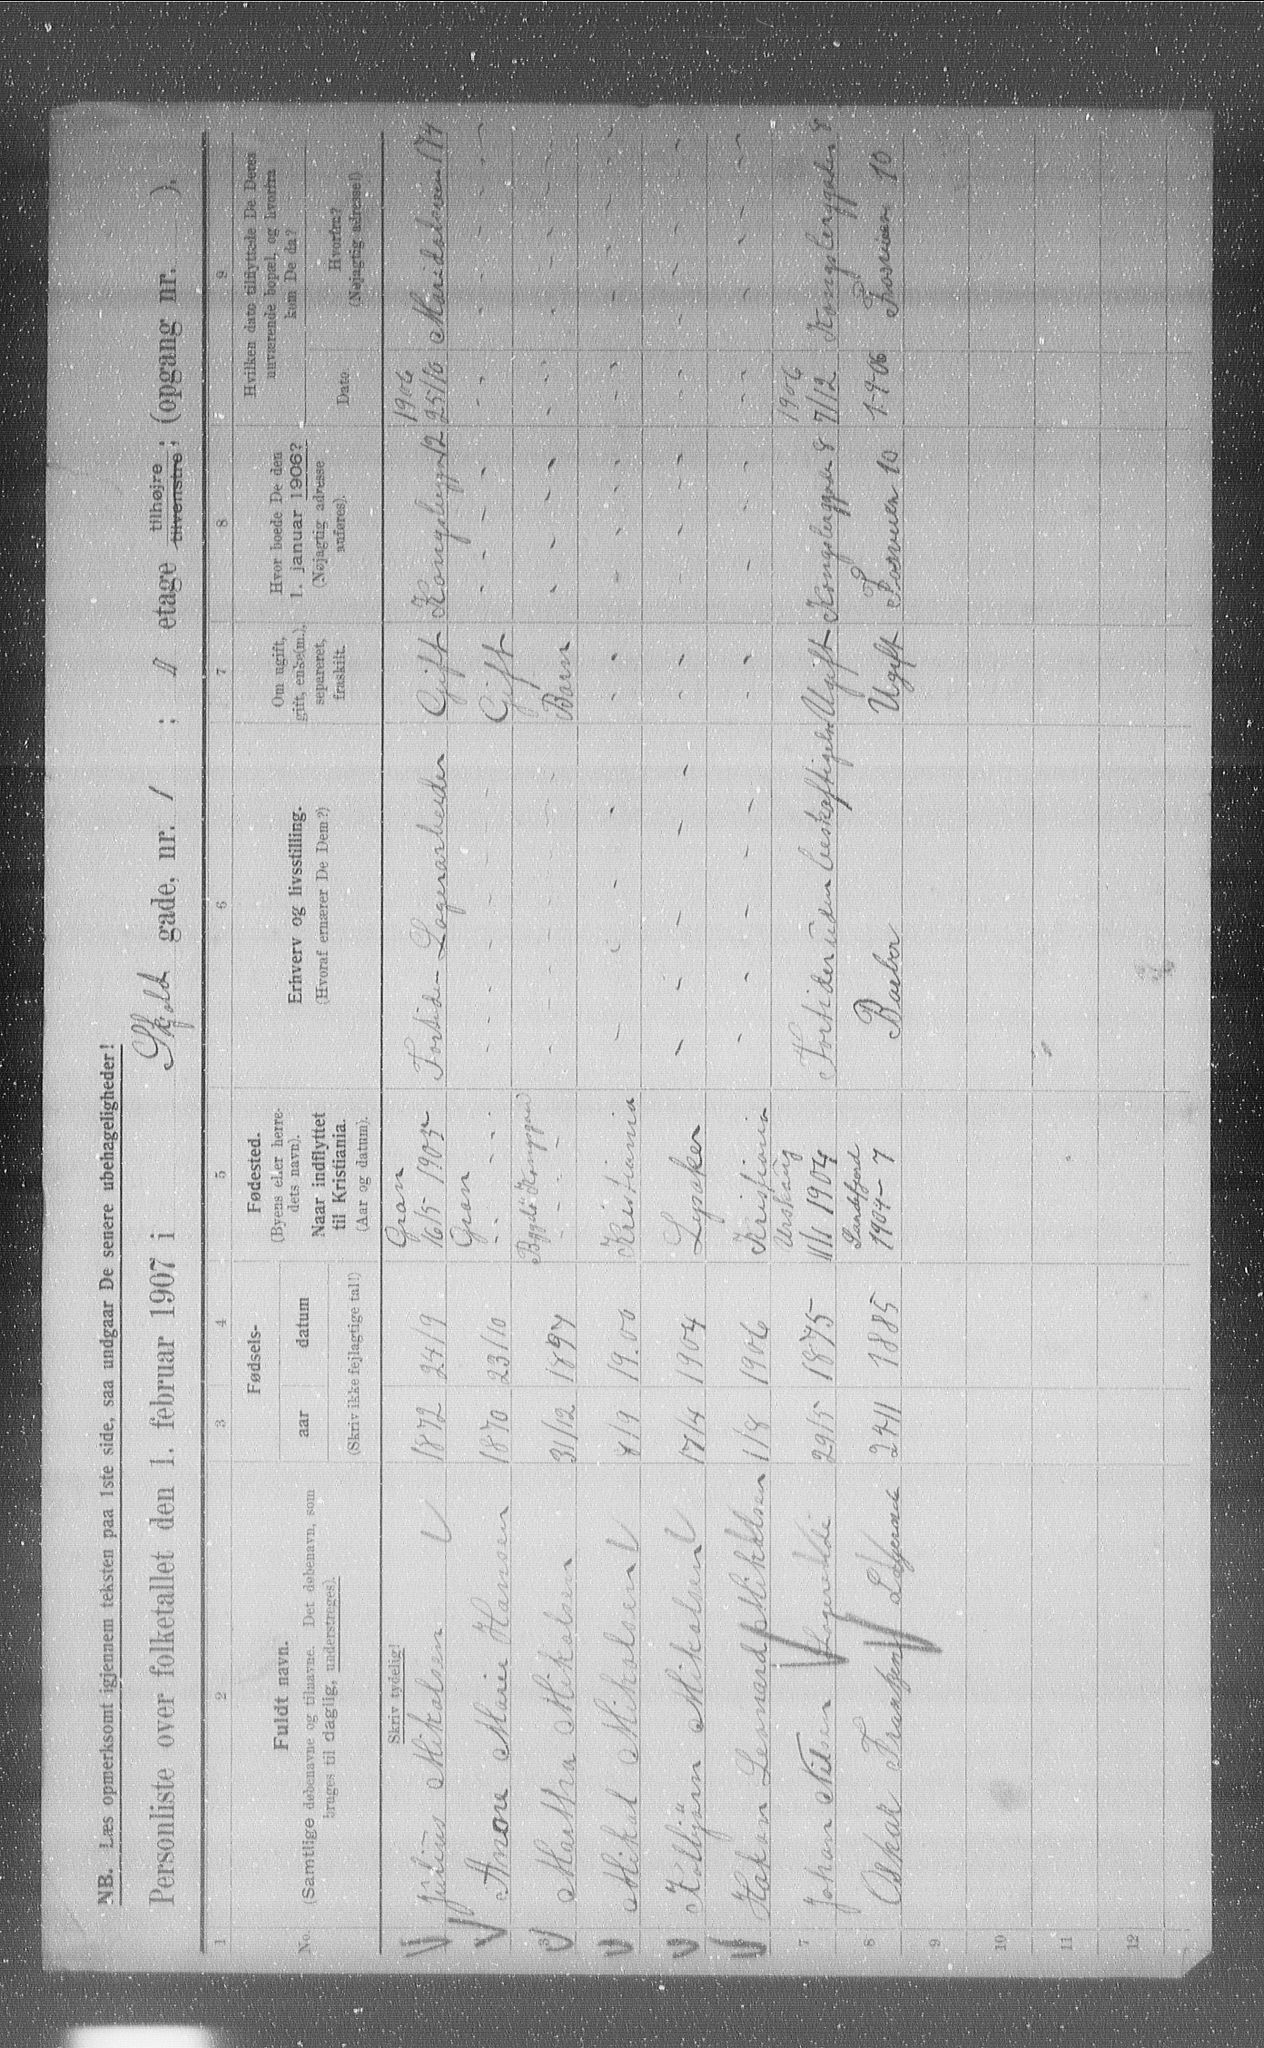 NB. Læs opmerksomt igjennem teksten paa 1ste side, saa undgaar De senere ubehageligheder!
Personliste over folketallet den 1. februar 1907 i Skjold gade, nr. 1 ; etage tilhøjre tilvenstre ; (opgang nr. ).
1 2 3 4 5 6 7 8 9
No.
Fuldt navn.
(Samtlige døbenavne og tilnavne. Det døbenavn, som
bruges til daglig, understreges).
Fødsels-
aar datum
(Skriv ikke fejlagtige tal!)
Fødested.
(Byens eler herre-
dets navn).
Naar indflyttet
til Kristiania.
(Aar og datum).
Erhverv og livsstilling.
(Hvoraf ernærer De Dem?)
Om ugift,
gift, enke(m.),
separeret,
fraskilt.
Hvor boede De den
1. januar 1906?
(Nøjagtig adresse
anføres).
Hvilken dato tilflyttede De Deres
nuværende bopæl, og hvorfra
kom De da?
Dato.
Hvorfra?
(Nøjagtig adresse!)
Skriv tydelig!
Julius Mikalsen 1872 24/9 Gran 16/5 1905 Fortid- Lagerarbeider Gift 12 1906 25/10 Maridalsveien 174
Anne Marie Hansen 1870 23/10 Gran - - - - Gift - - - -
3 Martha Mikalsen 31/12 1897 Bygdø Kongsgaard - - - - Barn - - - -
Mikal Mikalsen 8/9 19.00 Kristiania - - - - - - - -
Kolbjørn Mikalsen 17/4 1904 Lysaker - - - - - - - -
Hakon Leonard Mikkalsen 1/8 1906 Kristiania - - - - - - - -
7 Johan Nilsen 29/5 1875 Urskaug 11/1 1904 Fortiden uden beskæftigelse Ugift Kongsberggade 8 1906 7/12 Kongsberggaden 8
8 Oskar Frantzen 24/11 1885 Sandefjord 1904- 7 Barber Ugift 10 1-9-06 10
9
10
11
12